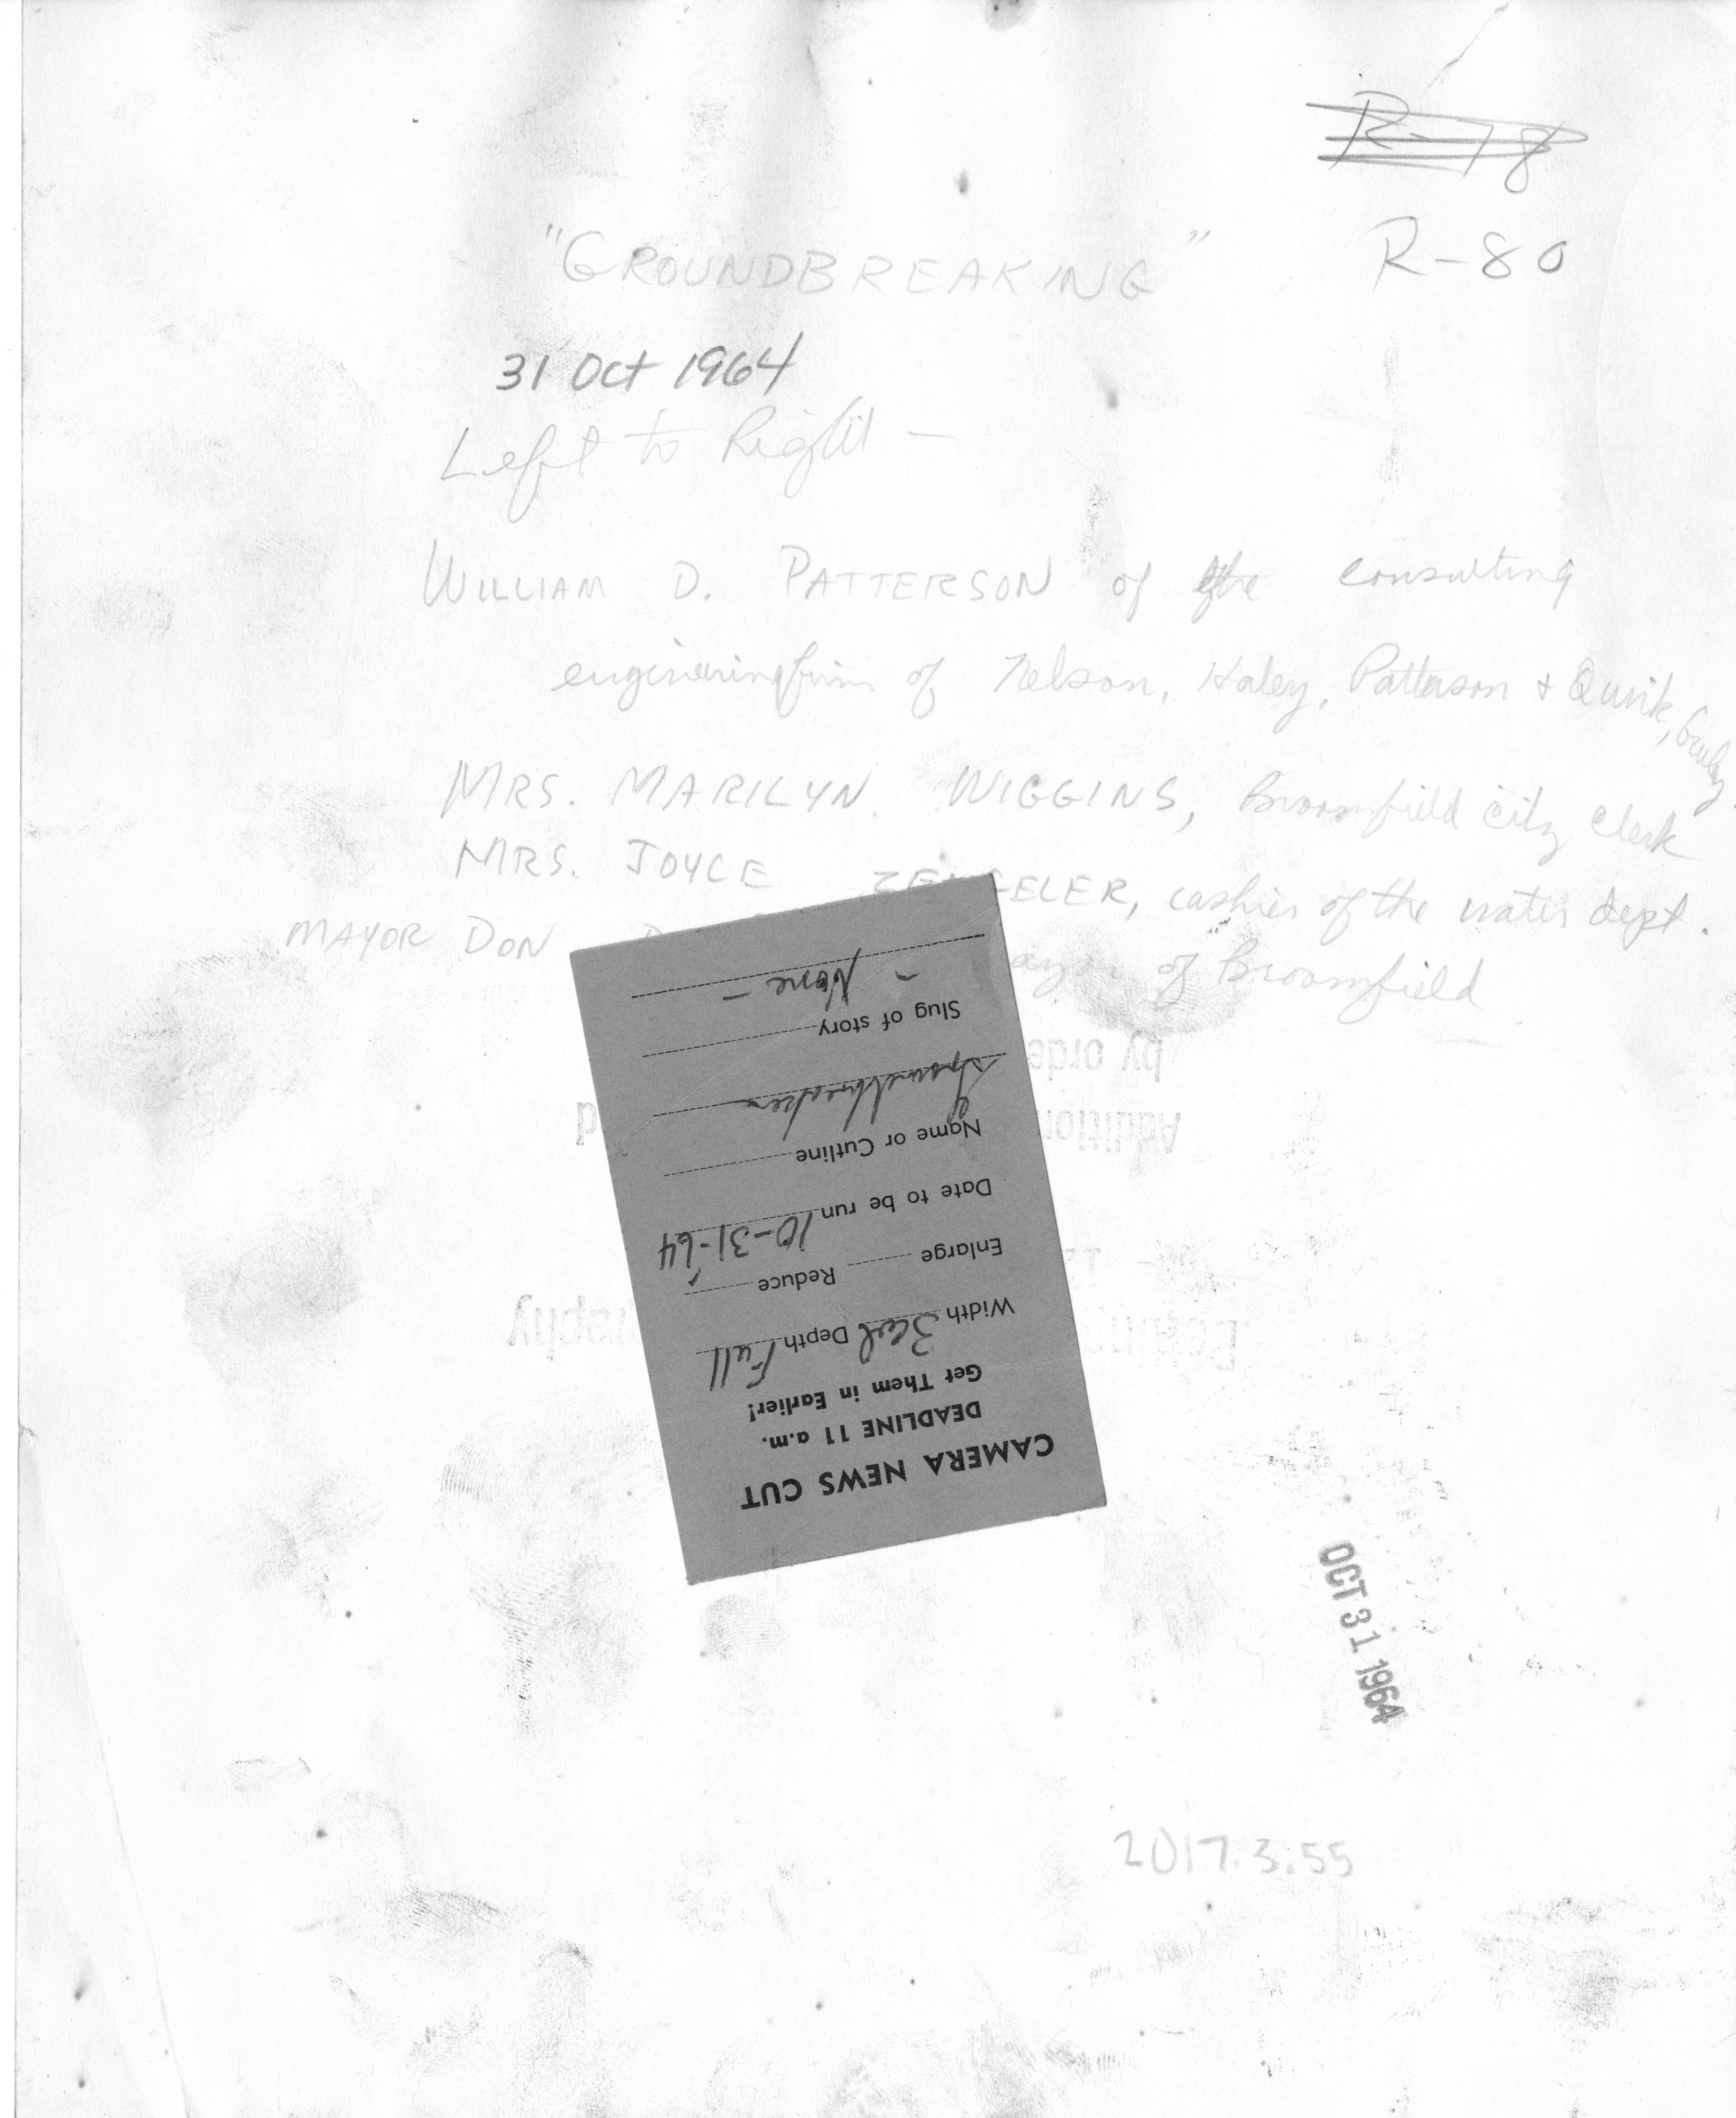 R-78
"GROUNDBREAKING" R-80
31 Oct 1964
Left to Right —
WILLIAM D. PATTERSON of the consulting
engineering firm of Nelson, Haley, Patterson & Quirk, Greeley
MRS. MARILYN WIGGINS, Broomfield city clerk
MRS. JOYCE ZE GELER, cashier of the water dept.
MAYOR DON ayor of Broomfield
by orde
Addition d
Econo raphy
CAMERA NEWS CUT
DEADLINE 11 a.m.
Get Them in Earlier!
Width 3 col Depth Full
Enlarge Reduce
Date to be run 10-31-64
Name or Cutline
Groundbreaking
Slug of story
- None -
OCT 31 1964
2017.3.55